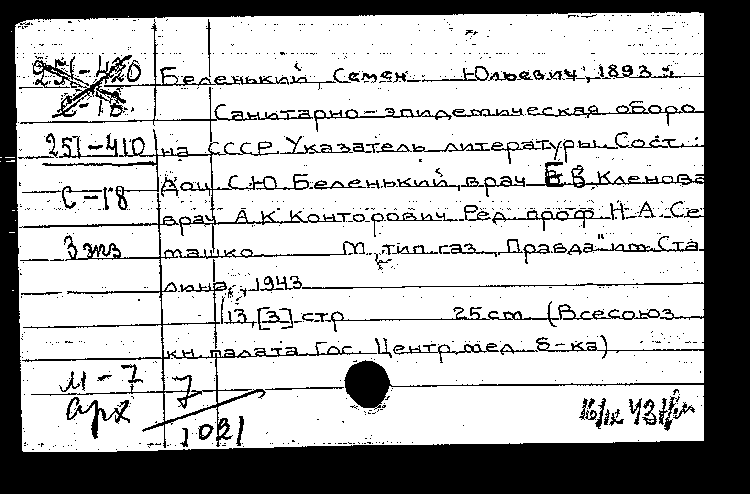 251-420
С-18.
251-410
С-18
3 экз
Беленький, Семен Юльевич, 1893
Санитарно-эпидемическая оборо
на СССР. Указатель литературы. Сост.:
Доц. С.Ю. Беленький, врач Е.В. Кленова
врач А.К. Конторович. Ред. проф. Н.А. Се
машко. М., тип. газ. "Правда" им. Ста
лина, 1943
13, [3] стр 25 cm. (Всесоюз
кн. палата. Гос. Центр. мед. б-ка).
М-7
арх
7
1021
16/IX 43